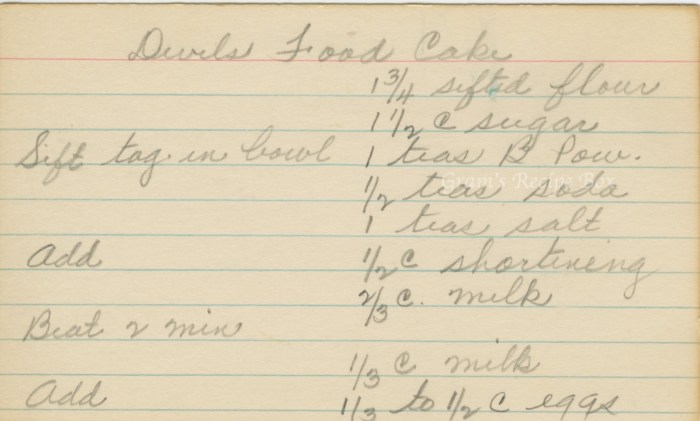 Devils Food Cake
1 3/4 sifted flour
1 1/2 c sugar
Sift tog in bowl 1 teas B Pow.
Gram's Recipe Box
1/2 teas soda
1 teas salt
Add 1/2 c shortening
2/3 c. milk
Beat 2 min
1/3 c milk
Add 1/3 to 1/2 c eggs